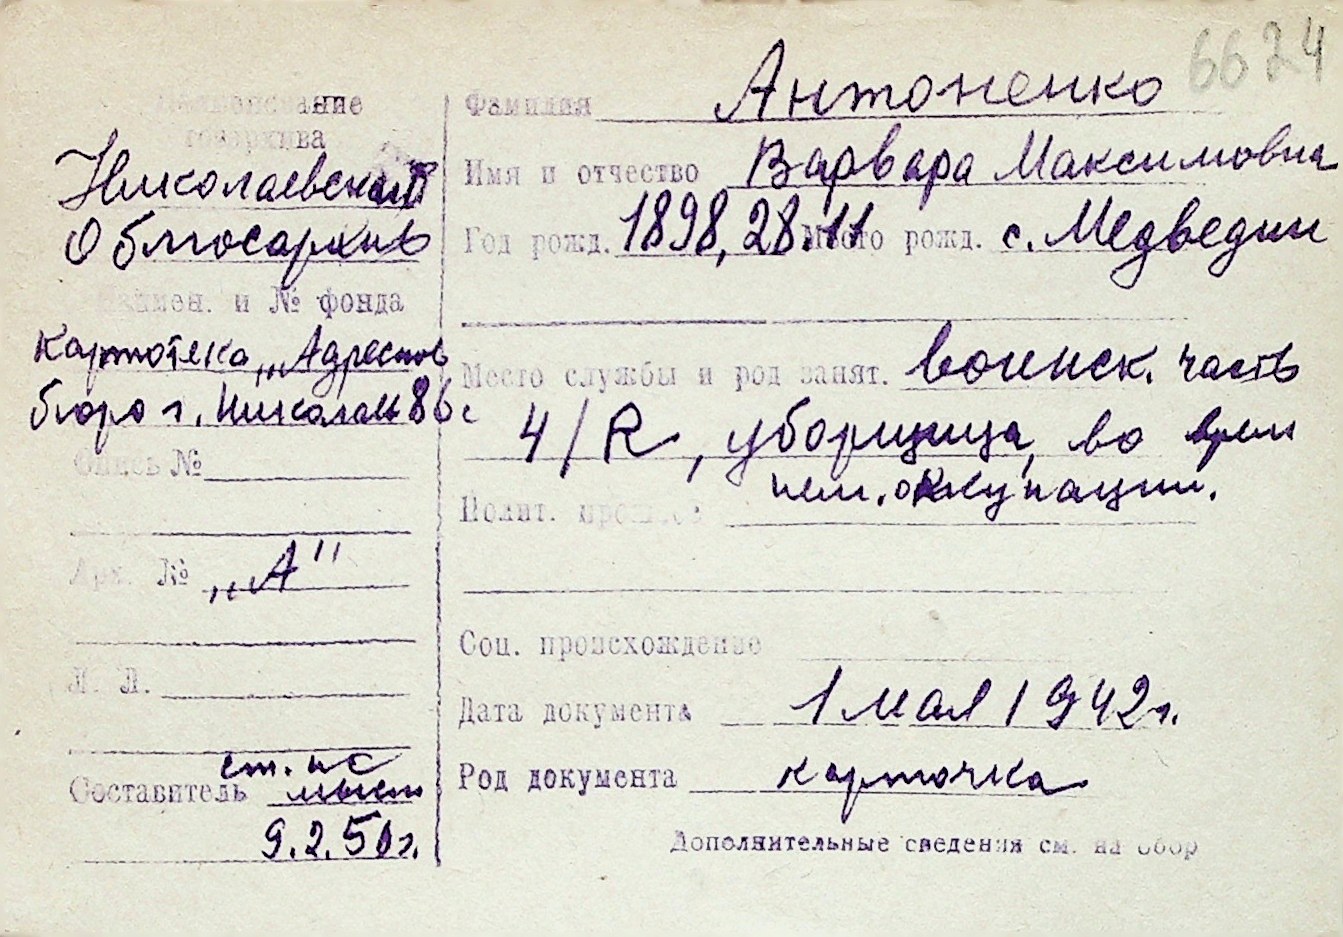 6624
Наименование
госархива
Николаевский
Облгосархив
Наимен. и № фонда
Картотека „Адресное
бюро г. Николаев
Опись №
Арх. № „А"
Л. Л.
Составитель
ст. нс
9.2.50г.
Фамилия Антоненко
Имя и отчество Варвара Максимовна
Год рожд. 1898, 28.11 Место рожд. с. Медведин
Место службы и род занят. воинск. часть
4/R, уборщица, во время
нем. оккупации.
Полит. прошлое
Соц. происхождение
Дата документа 1 мая 1942г.
Род документа карточка
Дополнительные сведения см. на обор